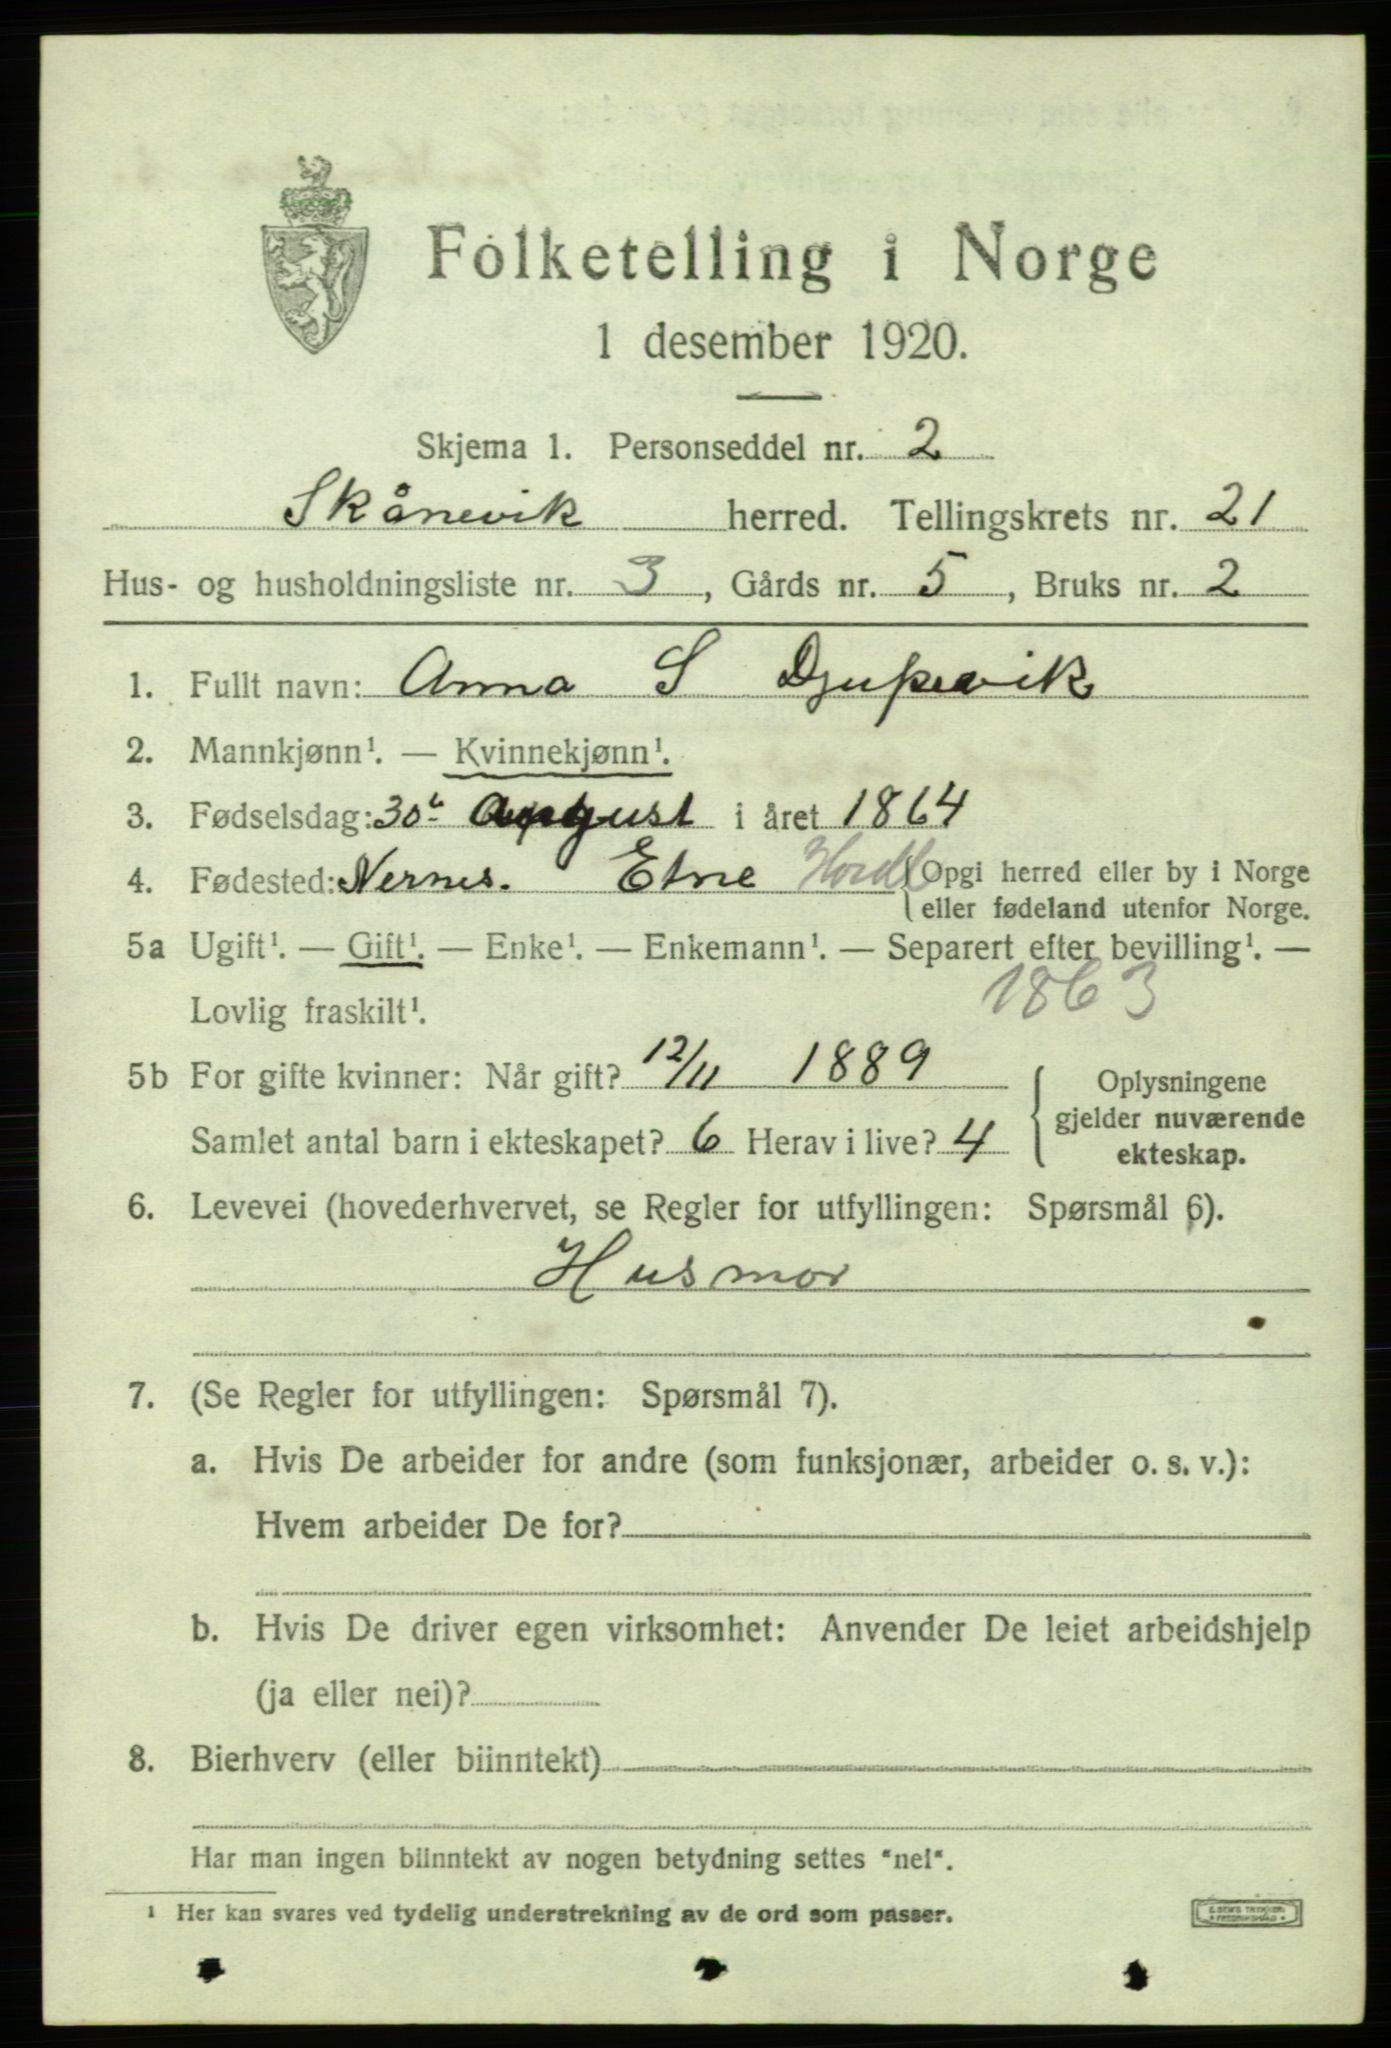 Folketelling i Norge
1 desember 1920.
Skjema 1. Personseddel nr. 2
Skånevik herred. Tellingskrets nr. 21
Hus- og husholdningsliste nr. 3, Gårds nr. 5, Bruks nr. 2
1. Fullt navn: Anna S Djupevik
2. Mannkjønn¹. — Kvinnekjønn¹.
3. Fødselsdag: 30te august i året 1864
4. Fødested: Nernes. Etne Hordl { Opgi herred eller by i Norge
eller fødeland utenfor Norge.
5a Ugift¹. — Gift¹. — Enke¹. — Enkemann¹. — Separert efter bevilling¹. —
Lovlig fraskilt¹. 1863
5b For gifte kvinner: Når gift? 12/11 1889 { Oplysningene
gjelder nuværende
Samlet antal barn i ekteskapet? 6 Herav i live? 4 ekteskap.
6. Levevei (hovederhvervet, se Regler for utfyllingen: Spørsmål 6).
Husmor
7. (Se Regler for utfyllingen: Spørsmål 7).
a. Hvis De arbeider for andre (som funksjonær, arbeider o. s. v.):
Hvem arbeider De for?
b. Hvis De driver egen virksomhet: Anvender De leiet arbeidshjelp
(ja eller nei)?
8. Bierhverv (eller biinntekt)
Har man ingen biinntekt av nogen betydning settes "nei".
¹ Her kan svares ved tydelig understrekning av de ord som passer.